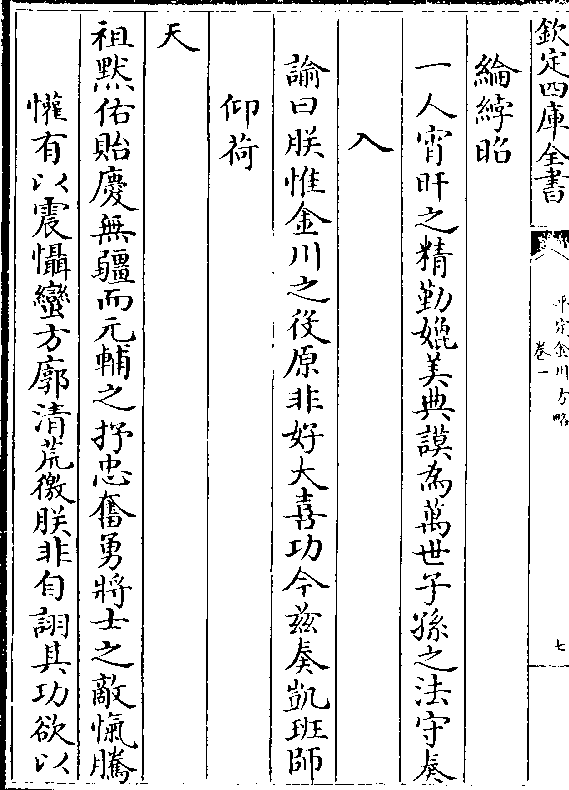 欽定四庫全書
平定金川方略
卷一
七
綸綍昭
一人宵旰之精勤媲美典謨為萬世子孫之法守奏
入
諭曰朕惟金川之役原非好大喜功今兹奏凱班師
仰荷
天
祖默佑貽慶無疆而元輔之抒忠奮勇將士之敵愾騰
懽有以震懾蠻方廓清荒徼朕非自詡其功欲以